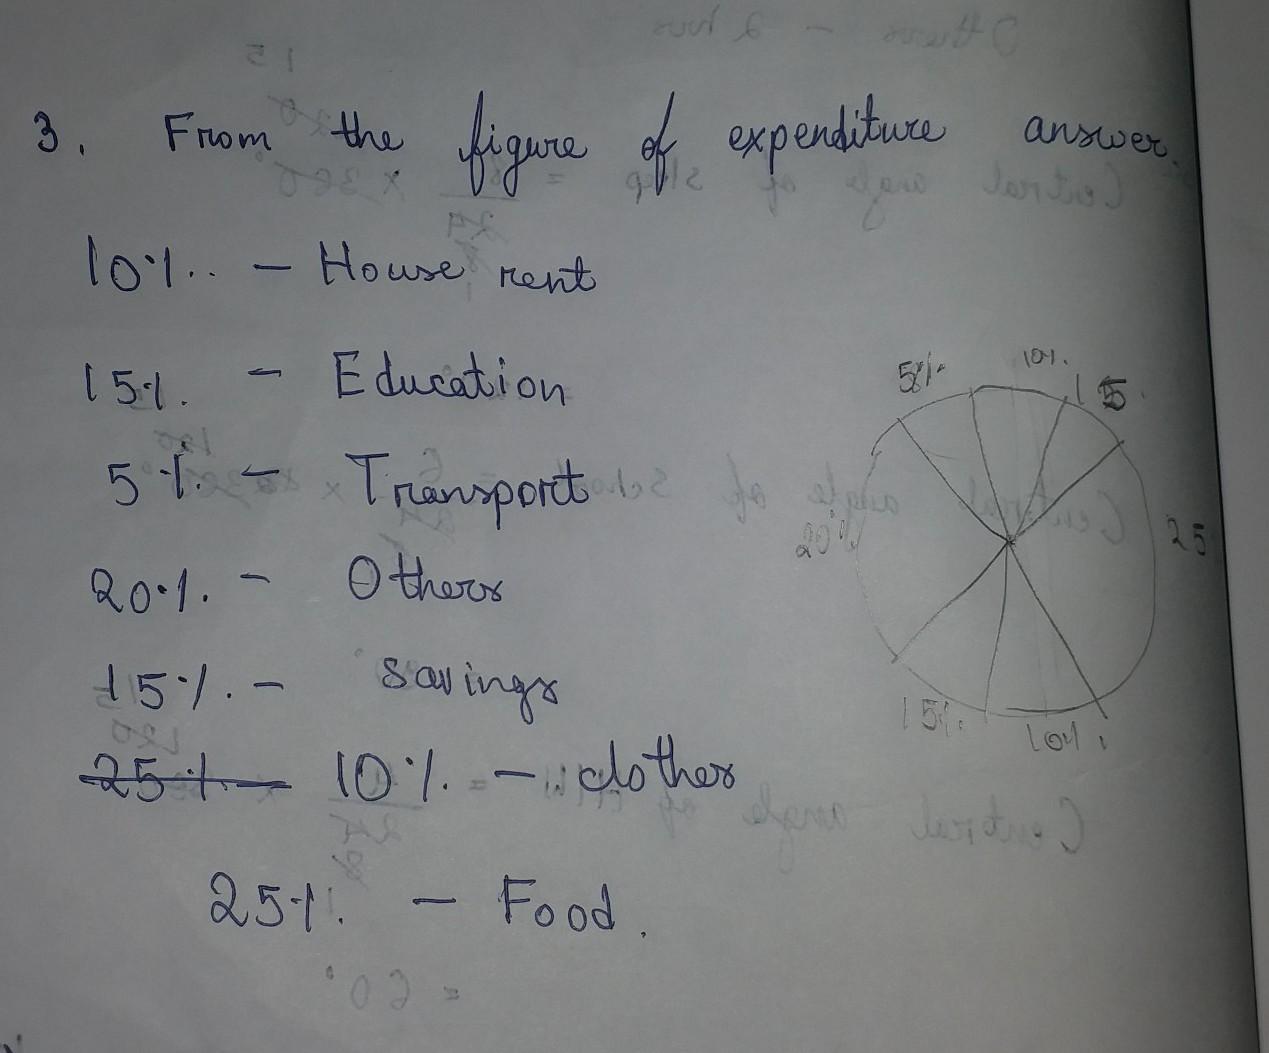 3. From the figure of expenditure answer.
10%. - House rent
15%. - Education
5%. - Transport
20%. - Others
15%. - Savings
25% - 10%. - clothes
25%. - Food.
5%.
10%.
15
20%
25
15%.
10%.